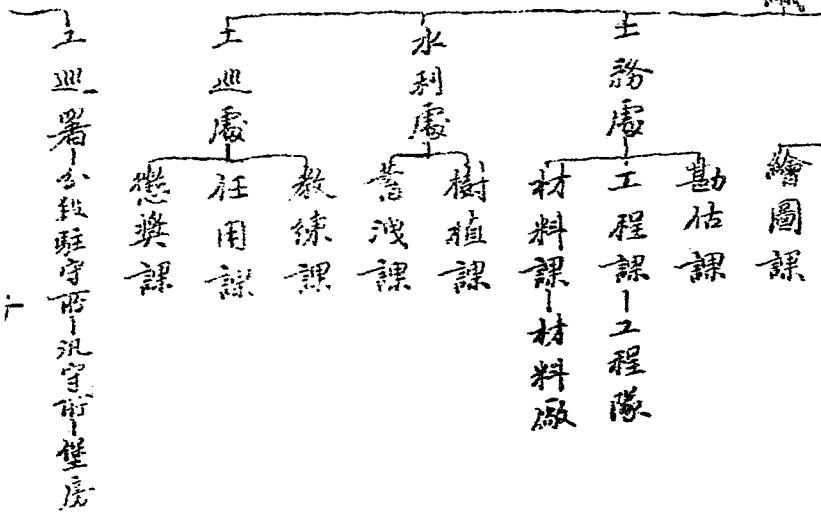 繪圖課
土務處
勘估課
工程課－工程隊
材料課－材料廠
水利處
樹植課
蓄洩課
土巡處
教練課
任用課
懲奬課
工巡署－分段駐守所－汛守所－堡房